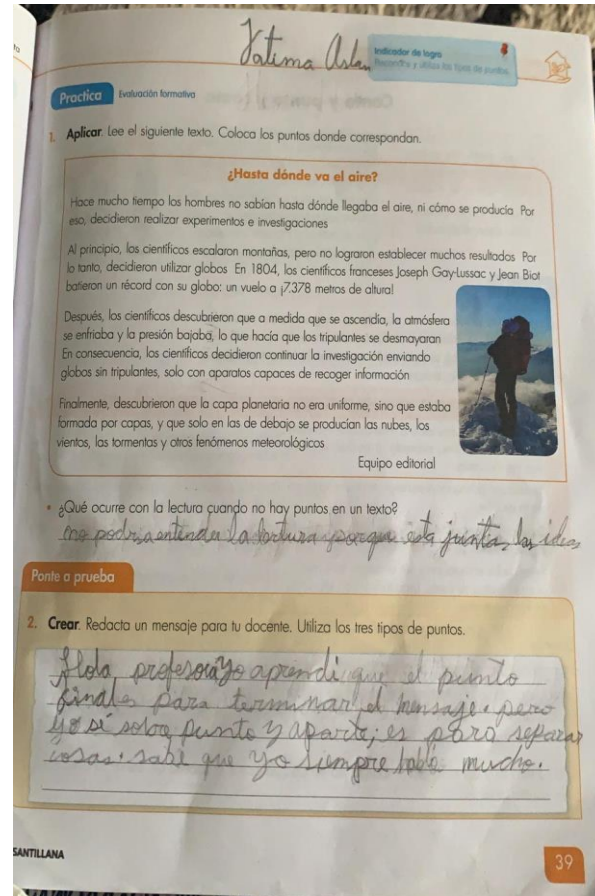 Fatima Aslan
Indicador de logro
Reconoce y utiliza los tipos de puntos.
Practica
Evaluación formativa
1. Aplicar. Lee el siguiente texto. Coloca los puntos donde correspondan.
¿Hasta dónde va el aire?
Hace mucho tiempo los hombres no sabían hasta dónde llegaba el aire, ni cómo se producía Por
eso, decidieron realizar experimentos e investigaciones
Al principio, los científicos escalaron montañas, pero no lograron establecer muchos resultados Por
lo tanto, decidieron utilizar globos En 1804, los científicos franceses Joseph Gay-Lussac y Jean Biot
batieron un récord con su globo: un vuelo a ¡7.378 metros de altura!
Después, los científicos descubrieron que a medida que se ascendía, la atmósfera
se enfriaba y la presión bajaba, lo que hacía que los tripulantes se desmayaran
En consecuencia, los científicos decidieron continuar la investigación enviando
globos sin tripulantes, solo con aparatos capaces de recoger información
Finalmente, descubrieron que la capa planetaria no era uniforme, sino que estaba
formada por capas, y que solo en las de debajo se producían las nubes, los
vientos, las tormentas y otros fenómenos meteorológicos
Equipo editorial
• ¿Qué ocurre con la lectura cuando no hay puntos en un texto?
no podria entender la lectura porque está juntas las ideas
Ponte a prueba
2. Crear. Redacta un mensaje para tu docente. Utiliza los tres tipos de puntos.
Hola, profesora yo aprendi que el punto
final es para terminar el mensaje. pero
yo sí sobre punto y aparte; es para separar
cosas. sabe que yo siempre hablo mucho.
SANTILLANA
39